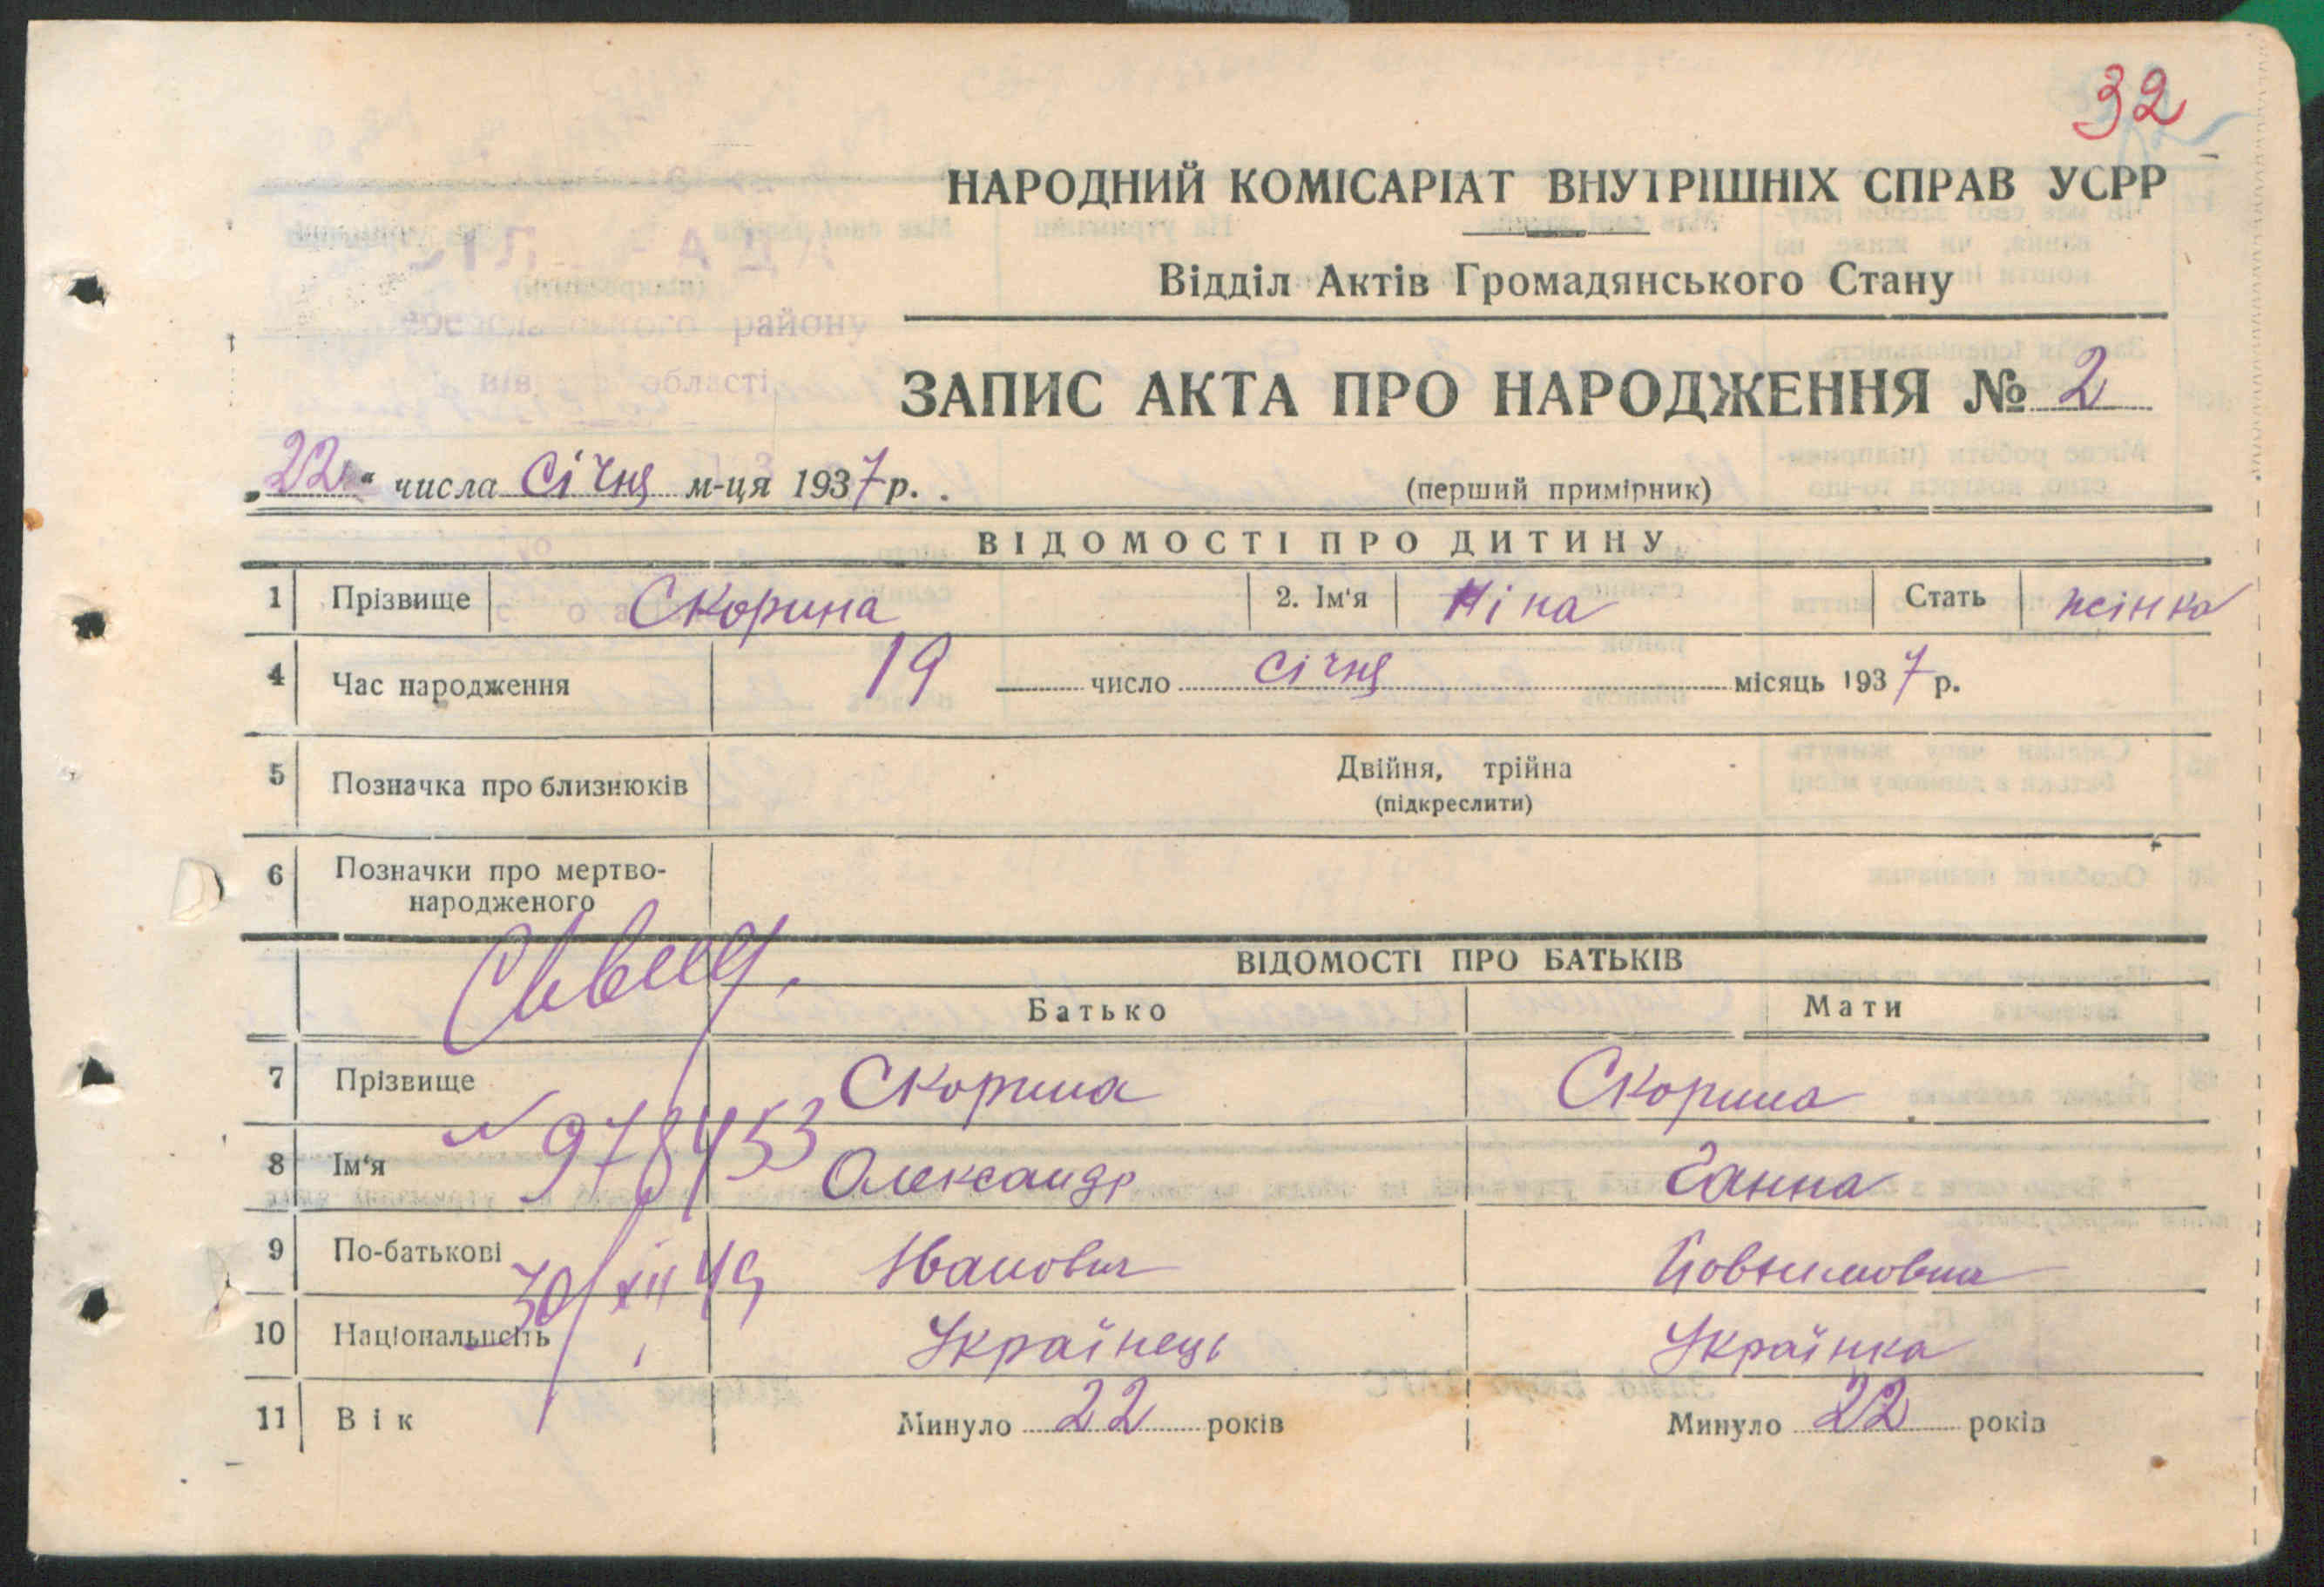 32
НАРОДНИЙ КОМІСАРІАТ ВНУТРІШНІХ СПРАВ УСРР
Відділ Актів Громадянського Стану
району
області
ЗАПИС АКТА ПРО НАРОДЖЕННЯ № 2
„22“ числа Січня м-ця 1937 р.
(перший примірник)
ВІДОМОСТІ ПРО ДИТИНУ
1 Прізвище Скорина 2. Ім'я Ніна Стать жінка
4 Час народження 19 число січня місяць 1937 р.
5 Позначка про близнюків Двійня, трійна
(підкреслити)
6 Позначки про мертво-
народженого
ВІДОМОСТІ ПРО БАТЬКІВ
Батько Мати
7 Прізвище Скорина Скорина
№ 978453
8 Ім'я Олександр Ганна
9 По-батькові Іванович
30/XII 49
10 Національність Українець Українка
11 Вік Минуло 22 років Минуло 22 років